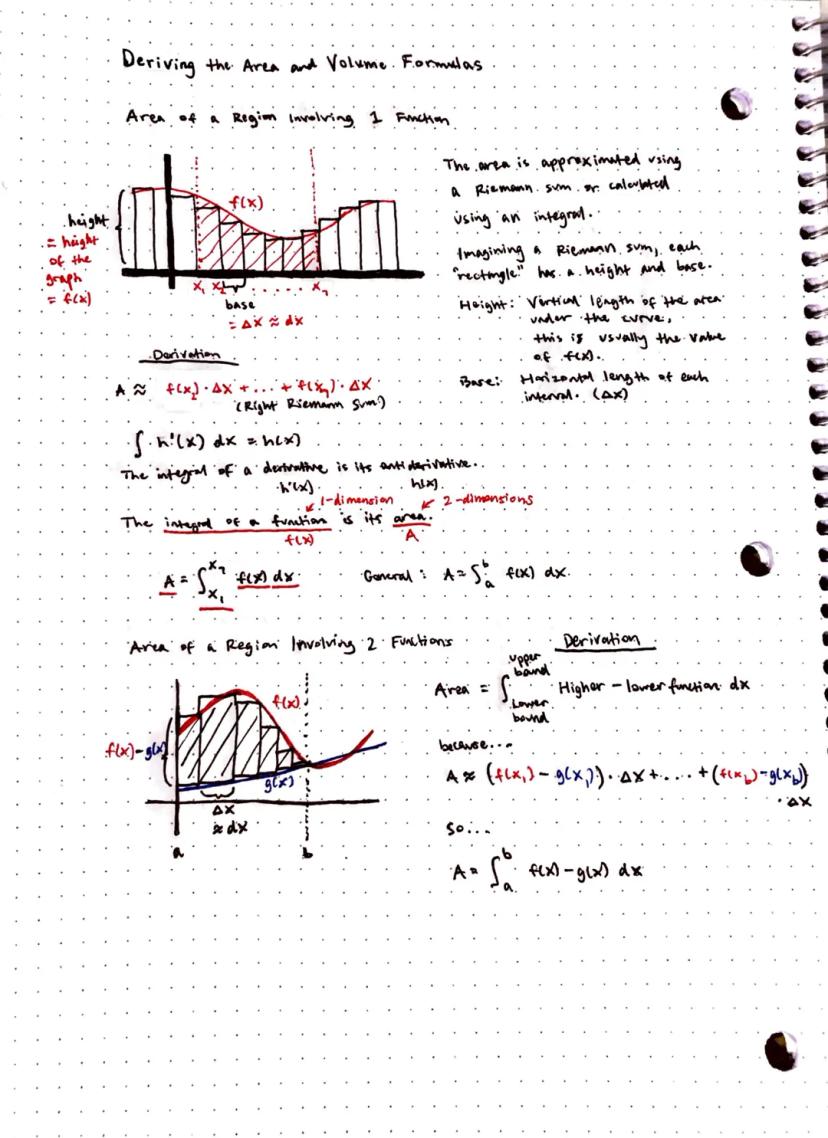 Deriving the Area and Volume Formulas
Area of a Region Involving 1 Function
f(x)
height
= height
of the
graph
= f(x)
x₁ x₂ ...... x₇
base
= Δx ≈ dx
The area is approximated using
a Riemann sum or calculated
using an integral.
Imagining a Riemann sum, each
"rectangle" has a height and base.
Height: Vertical length of the area
under the curve,
this is usually the value
of f(x).
Base: Horizontal length of each
interval. (Δx)
Derivation
A ≈ f(x₂)·Δx + ... + f(x₇)·Δx
(Right Riemann Sum)
∫ h'(x) dx = h(x)
The integral of a derivative is its antiderivative.
h'(x) h(x)
1-dimension 2-dimensions
The integral of a function is its area.
f(x) A
A = ∫ₓ₁ˣ⁷ f(x) dx General: A = ∫ₐᵇ f(x) dx.
Area of a Region Involving 2 Functions
f(x)
f(x)-g(x)
g(x)
Δx
≈ dx
a b
Derivation
upper
bound
Area = ∫ Higher - lower function dx
Lower
bound
because...
A ≈ (f(x₁) - g(x₁))·Δx + .... + (f(x_b) - g(x_b))
·Δx
So...
A = ∫ₐᵇ f(x) - g(x) dx